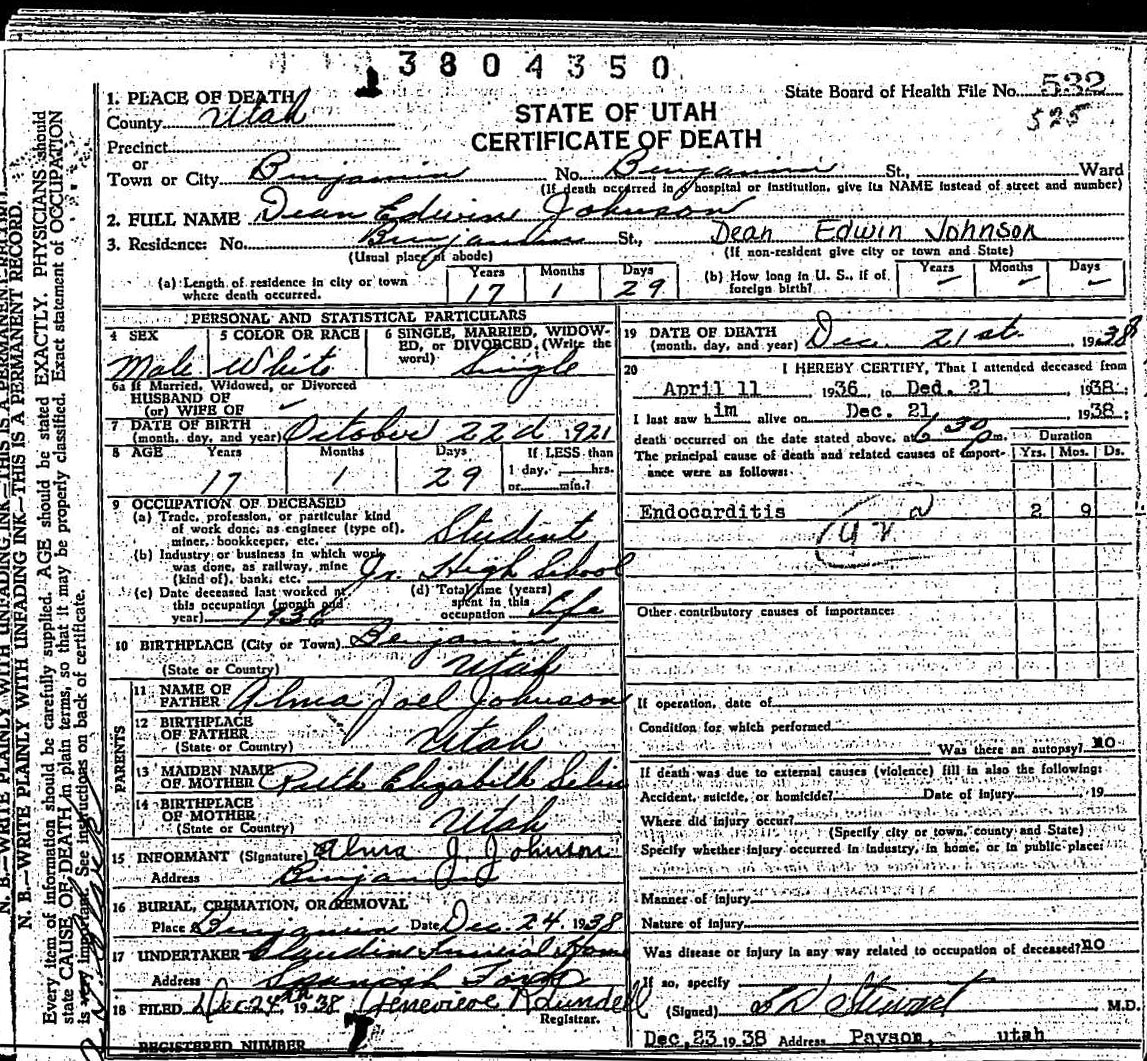 3804350
1
State Board of Health File No. 532
525
1. PLACE OF DEATH
County Utah
STATE OF UTAH
CERTIFICATE OF DEATH
Precinct
or
Town or City Benjamin No. Benjamin St., Ward
(If death occurred in a hospital or institution, give its NAME instead of street and number)
2. FULL NAME Dean Edwin Johnson
3. Residence: No. Benjamin St., Dean Edwin Johnson
(Usual place of abode) (If non-resident give city or town and State)
(a) Length of residence in city or town where death occurred. Years 17 Months 1 Days 29
(b) How long in U. S., if of foreign birth? Years – Months – Days –
PERSONAL AND STATISTICAL PARTICULARS
4 SEX Male
5 COLOR OR RACE White
6 SINGLE, MARRIED, WIDOW-
ED, or DIVORCED, (Write the
word) Single
6a If Married, Widowed, or Divorced
HUSBAND OF
(or) WIFE OF
7 DATE OF BIRTH
(month, day, and year) October 22d 1921
8 AGE Years 17 Months 1 Days 29 If LESS than
1 day, hrs.
or min.?
9 OCCUPATION OF DECEASED
(a) Trade, profession, or particular kind
of work done, as engineer (type of),
miner, bookkeeper, etc. Student
(b) Industry or business in which work
was done, as railway, mine
(kind of), bank, etc. Jr. High School
(c) Date deceased last worked at
this occupation (month and
year) 1936
(d) Total time (years)
spent in this
occupation life
10 BIRTHPLACE (City or Town) Benjamin
(State or Country) Utah
PARENTS
11 NAME OF
FATHER Alma Joel Johnson
12 BIRTHPLACE
OF FATHER
(State or Country) Utah
13 MAIDEN NAME
OF MOTHER Ruth Elizabeth
14 BIRTHPLACE
OF MOTHER
(State or Country) Utah
15 INFORMANT (Signature) Alma J. Johnson
Address Benjamin
16 BURIAL, CREMATION, OR REMOVAL
Place Benjamin Date Dec. 24, 1938
17 UNDERTAKER Claudin Funeral Home
Address Spanish Fork
18 FILED Dec 24th 1938 Genevieve Lundell
Registrar.
REGISTERED NUMBER 7
19 DATE OF DEATH
(month, day, and year) Dec. 21st. 1938
20 I HEREBY CERTIFY, That I attended deceased from
April 11 1936, to Ded. 21 1938;
I last saw him alive on Dec. 21 1938;
death occurred on the date stated above, at 6 30 p m.
Duration
The principal cause of death and related causes of import-
ance were as follows: Yrs. Mos. Ds.
Endocarditis 2 9
Other contributory causes of importance:
If operation, date of
Condition for which performed
Was there an autopsy? no
If death was due to external causes (violence) fill in also the following:
Accident, suicide, or homicide? Date of injury , 19
Where did injury occur?
(Specify city or town, county and State)
Specify whether injury occurred in industry, in home, or in public place:
Manner of injury
Nature of injury
Was disease or injury in any way related to occupation of deceased? no
If so, specify
(Signed) Stewart M.D.
Dec, 23 1938 Address Payson, utah
N. B.—WRITE PLAINLY WITH UNFADING INK—THIS IS A PERMANENT RECORD.
N. B.—WRITE PLAINLY WITH UNFADING INK—THIS IS A PERMANENT RECORD.
Every item of information should be carefully supplied. AGE should be stated EXACTLY. PHYSICIANS should
state CAUSE OF DEATH in plain terms, so that it may be properly classified. Exact statement of OCCUPATION
is very important. See instructions on back of certificate.